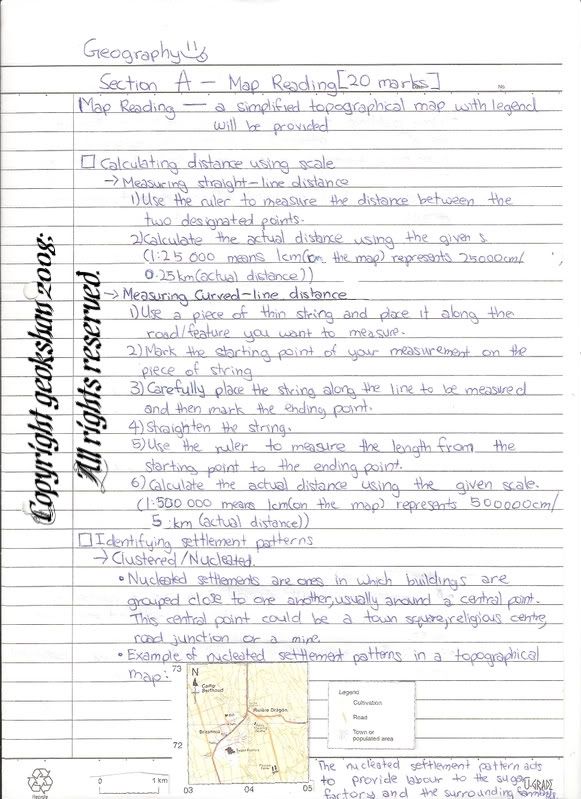 Geography
Section A — Map Reading [20 marks]
Map Reading — a simplified topographical map with legend
will be provided
Calculating distance using scale
→ Measuring straight-line distance
1) Use the ruler to measure the distance between the
two designated points.
2) Calculate the actual distance using the given s.
(1:25 000 means 1cm(on the map) represents 25000cm/
0.25km(actual distance))
→ Measuring Curved-line distance
1) Use a piece of thin string and place it along the
road/feature you want to measure.
2) Mark the starting point of your measurement on the
piece of string
3) Carefully place the string along the line to be measured
and then mark the ending point.
4) Straighten the string.
5) Use the ruler to measure the length from the
starting point to the ending point.
6) Calculate the actual distance using the given scale.
(1:500 000 means 1cm(on the map) represents 500000cm/
5 km (actual distance))
Identifying settlement patterns
→ Clustered/Nucleated.
• Nucleated settlements are ones in which buildings are
grouped close to one another, usually around a central point.
This central point could be a town square, religious centre,
road junction or a mine.
• Example of nucleated settlement patterns in a topographical
map:
73
72
03 04 05
N
Camp
Berthaud
Rivière Dragon
Legend
Cultivation
Road
Town or
populated area
0 1 km
The nucleated settlement pattern acts
to provide labour to the sugar
factory and the surrounding
U-GRADE
Copyright geokshow 2008.
All rights reserved.